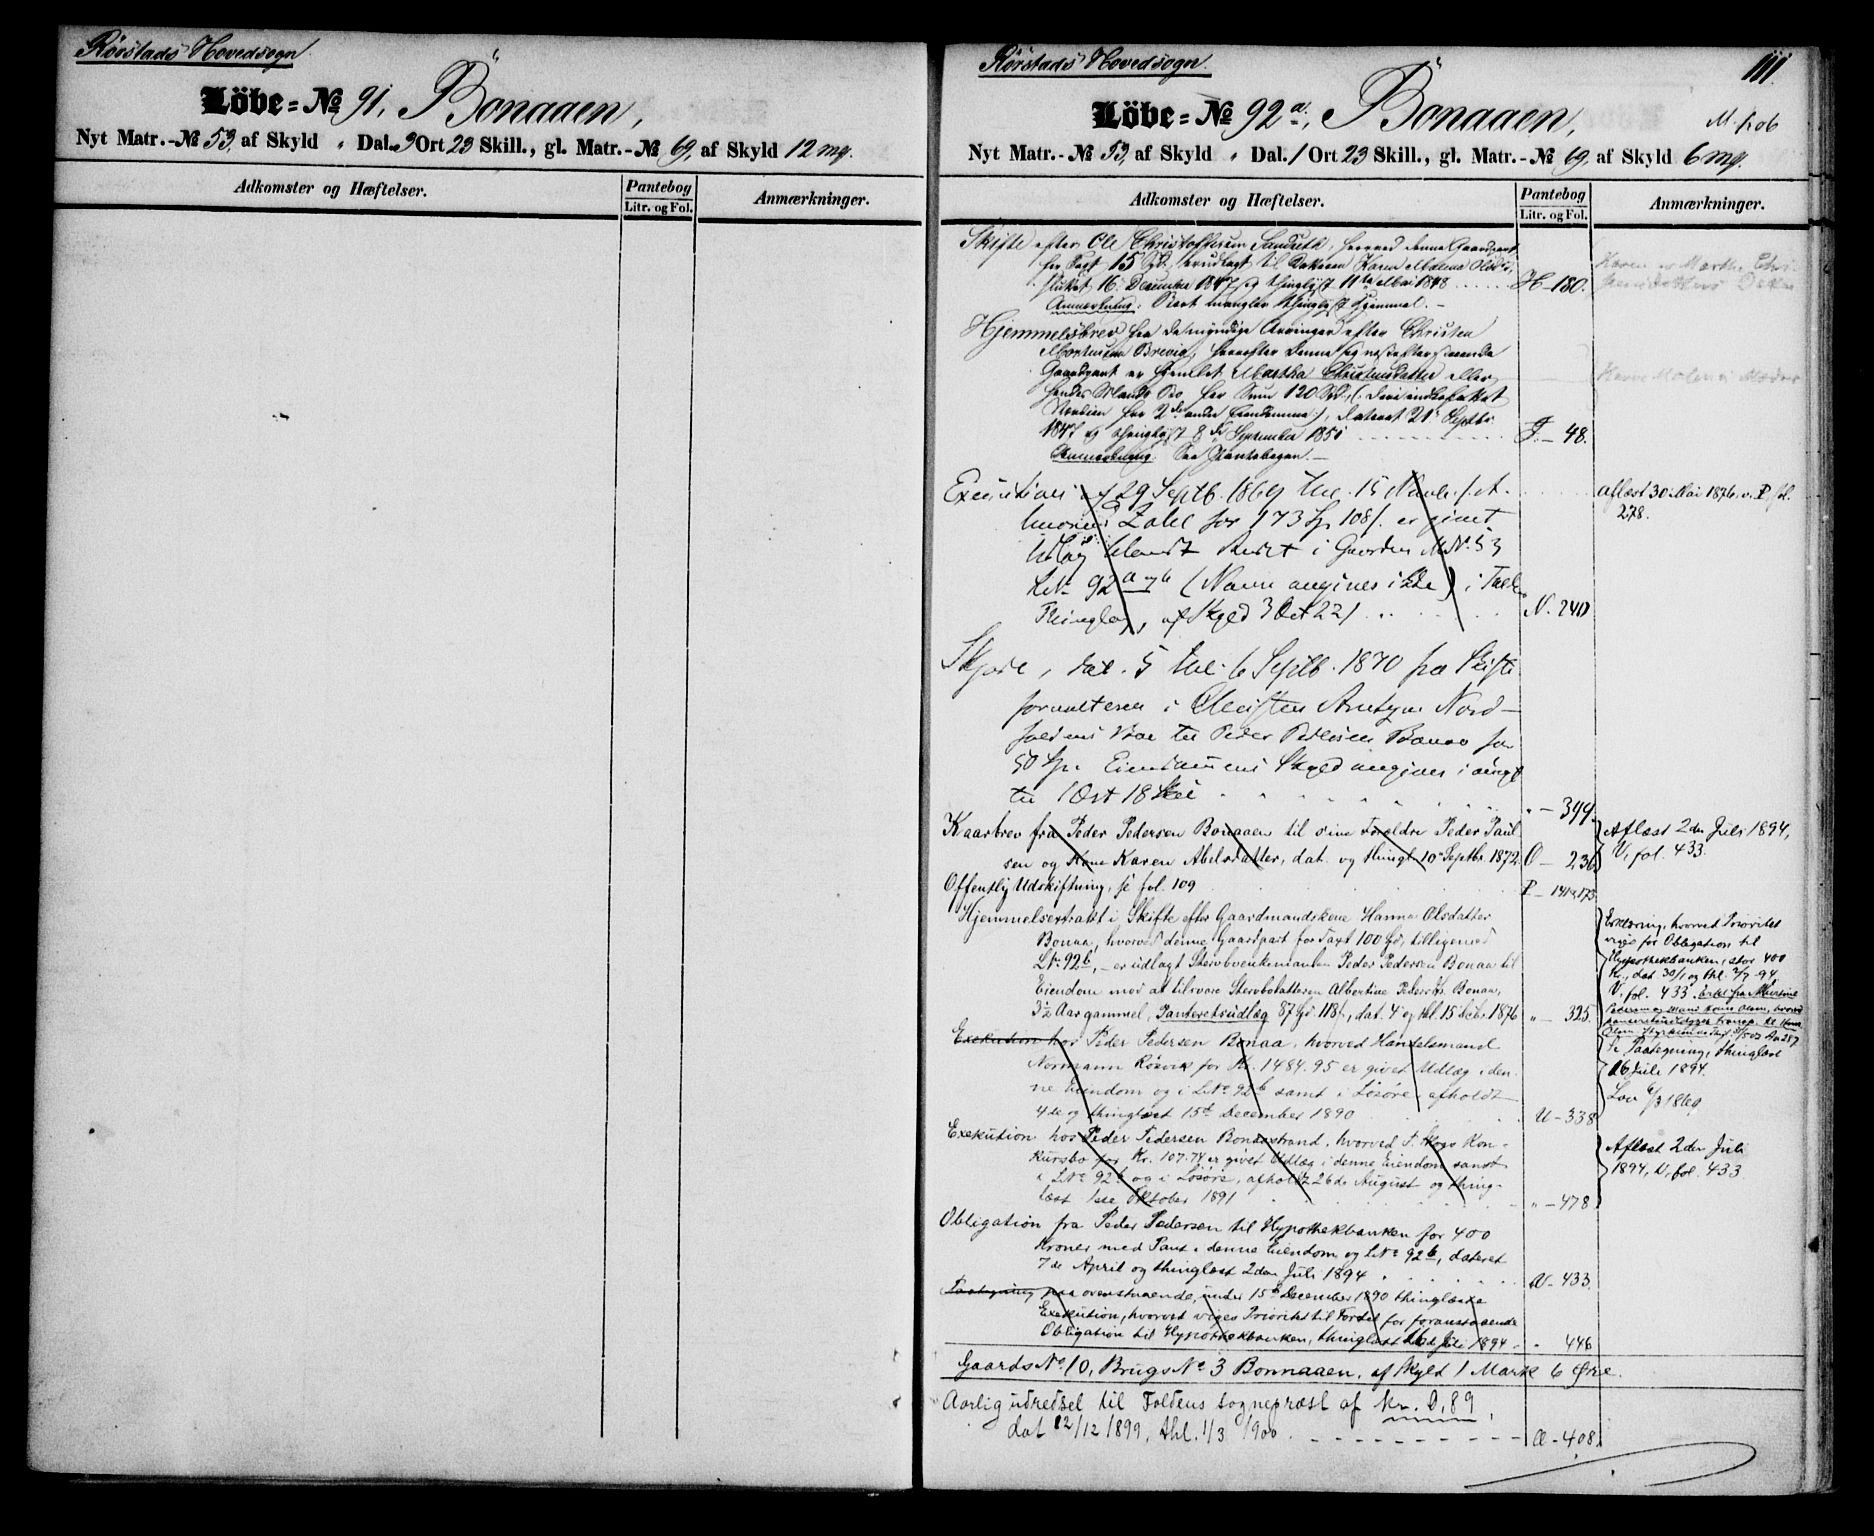 Rörstads Hovedsogn
Löbe=No 91, Bonaaen,
Nyt Matr.-No 53, af Skyld " Dal. 3 Ort 23 Skill., gl. Matr.-No 69, af Skyld 12 mg.
Adkomster og Hæftelser.
Pantebog
Litr. og Fol.
Anmærkninger.
Rörstads Hovedsogn.
111.
Löbe=No 92 a, Bonaaen,
M. 1.06
Nyt Matr.-No 53, af Skyld " Dal. 1 Ort 23 Skill., gl. Matr.-No 69, af Skyld 6 mg.
Adkomster og Hæftelser.
Pantebog
Litr. og Fol.
Anmærkninger.
Skifte efter Ole Christoffersen, hvorved denne Gaardpart
for Taxt 15 Spd. er udlagt til Datteren Karen Olsdtr.,
sluttet 16. December 1847 og thinglyst 11te Mai 1848 H - 180.
Anmerkning: Skjøt mangler thinglyst Hjemmel. -
Hjemmelsbrev fra de myndige Arvinger efter Christen
Mortensen Brevig, hvorefter denne og næstefterstaaende
Gaardpart er Martha Christensdatter eller
hendes Mands Bo, for Sum 120 Spd.,
Værdien for 2de andre Eiendomme), dateret 21 Septbr.
1847 og thinglyst 8de September 1850 I. - 48.
Anmerkning: Se Pantebogen. -
Execution af 29 Septb. 1869 thl. 15 Novb. f. A.
Zahl for 173 Sp 108 s. er givet
Udlæg blandt Andet i Gaarden M.No. 53
L.No 92 a og b (Navn angives ikke) i
Thinglag, af Skyld 3 Ort 22 s N. 240
aflæst 30 Mai 1876, v. P. fol.
278.
Skjøde, dat. 5 thl. 6 Septb. 1870 fra Skifte
forvalteren i Christen Arntsen Nord-
foldens Boe til Peder Pedersen Bonaa for
50 Sp. Eiendommens Skyld angives i
til 1 Ort 18 Skil " - 399.
Kaarbrev fra Peder Pedersen Bonaaen til sine Foreldre Peder Paul
sen og Kone Karen Abelsdatter, dat. og thingl. 10 Septbr. 1872. O - 236
Aflæst 2den Juli 1894,
V, fol. 433.
Offentlig Udskiftning, se fol. 109 P - 141 &amp; 173
Hjemmelsextrakt i Skifte efter Gaardmandskone Hanna Olsdatter
Bonaa, hvorved denne Gaardpart for Taxt 100 Spd, tilligemed
L.No. 92 b, - er udlagt Stervboenkemanden Peder Pedersen Bonaa til
Eiendom mod at tilsvare Stervbodatteren Albertine Pedersdtr. Bonaa,
3½ Aar gammel, Panteretsudlæg 87 Spd 118 s, dat. 4 og thl. 15 Decbr. 1876 " - 325.
Erklæring, hvorved Prioritet
viges for Obligation til
Hypothekbanken, stor 400
Kr., dat 30/1 og thl. 2/7 94.
V. fol. 433.
Se Paategning, thinglæst
16 Juli 1894.
Exekution hos Peder Pedersen Bonaa, hvorved Handelsmand
Normann Røsvik for Kr. 1484.95 er givet Udlæg i den-
ne Eiendom og i L.No. 92 b samt i Løsøre, afholdt
4de og thinglæst 15de December 1890 U - 338
Exekution hos Peder Pedersen Bonaastrand, hvorved Kon-
kursbo for Kr. 107.74 er givet Udlæg i denne Eiendom samt
i L.No. 92 b og i Løsøre, afholdt 26de August og thing-
læst 1ste Oktober 1891 " - 478
Aflæst 2den Juli
1894, V, fol. 433
Obligation fra Peder Pedersen til Hypothekbanken for 400
Kroner med Pant i denne Eiendom og L.No. 92 b, dateret
7de April og thinglæst 2den Juli 1894 V - 433.
Paategning paa ovenstaaende, under 15de December 1890 thinglæste
Exekution, hvorved viges Prioritet til Fordel for foranstaaende
Obligation til Hypothekbanken, thinglæst 16de Juli 1894 " 446
Gaards No. 10, Brugs No. 3 Bonnaaen, af Skyld 1 Mark 6 Øre.
Aarlig udredsel til Foldens sognepræst af Kr. 0,89,
dat 12/12 1899, thl. 1/3 1900 Æ - 408.